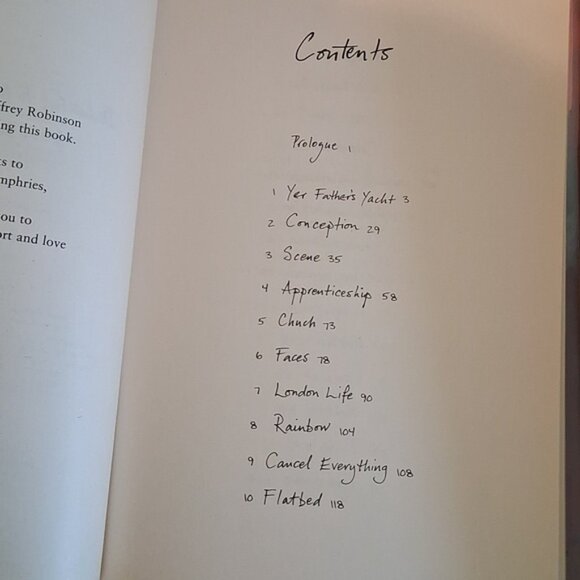 ffrey Robinson
ng this book.
s to
mphries,
ou to
ort and love
Contents
Prologue 1
1 Yer Father's Yacht 3
2 Conception 29
3 Scene 35
4 Apprenticeship 58
5 Chuch 73
6 Faces 78
7 London Life 90
8 Rainbow 104
9 Cancel Everything 108
10 Flatbed 118